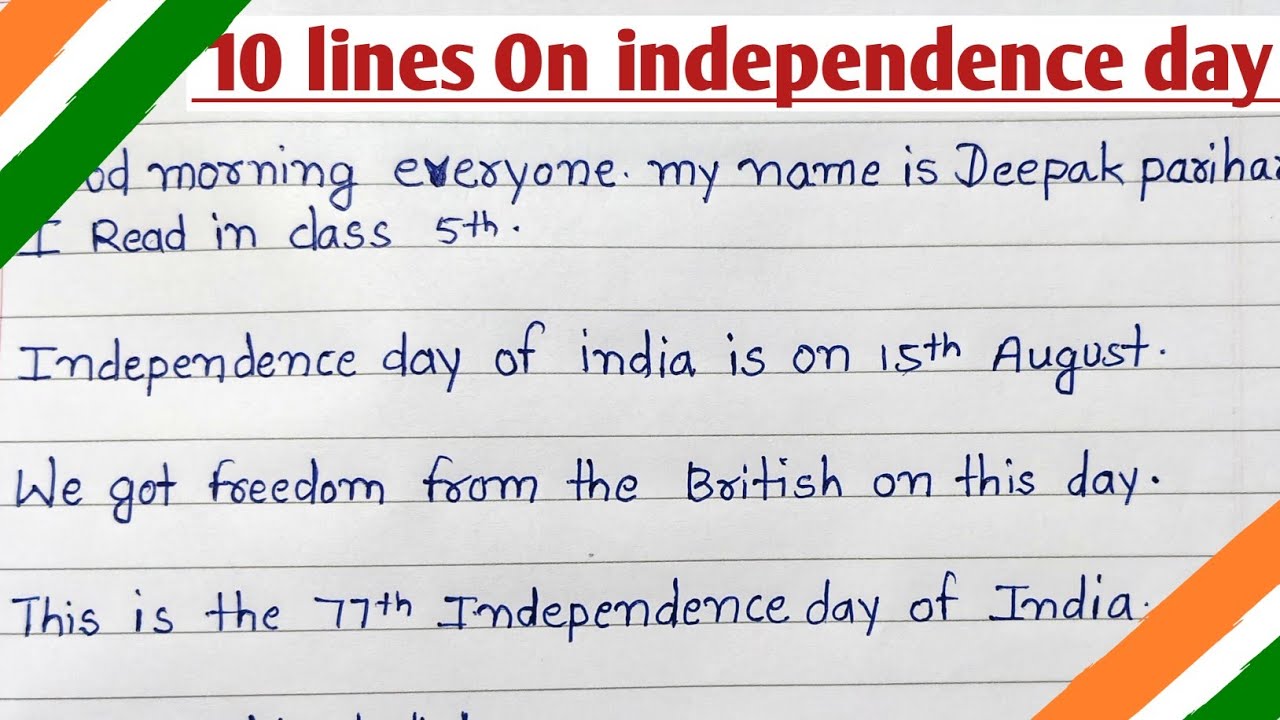 10 lines On independence day
morning everyone. my name is Deepak parihar
I Read in class 5th.
Independence day of india is on 15th August.
We got freedom from the British on this day.
This is the 77th Independence day of India.